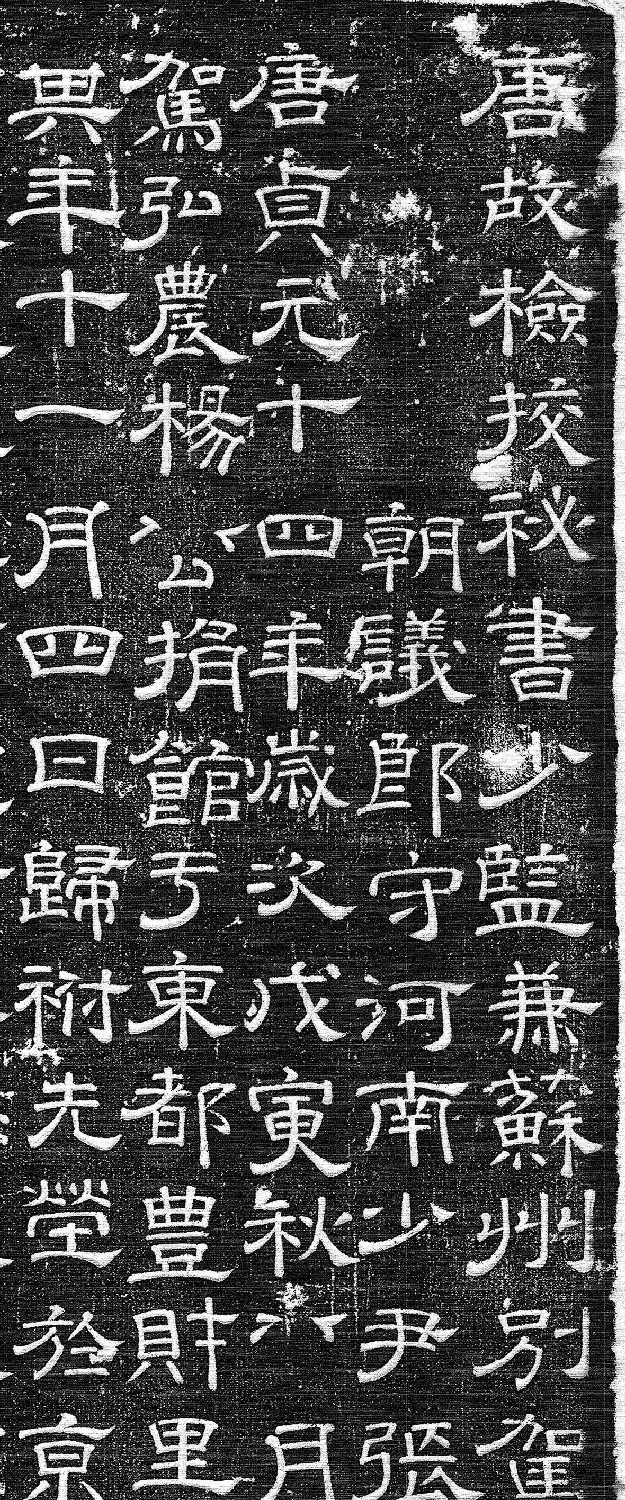 唐故檢挍祕書少監兼蘇州別駕
朝議郎守河南少尹張
唐貞元十四年歲次戊寅秋八月
駕弘農楊公捐館于東都豊財里
其年十一月四日歸祔先塋於京